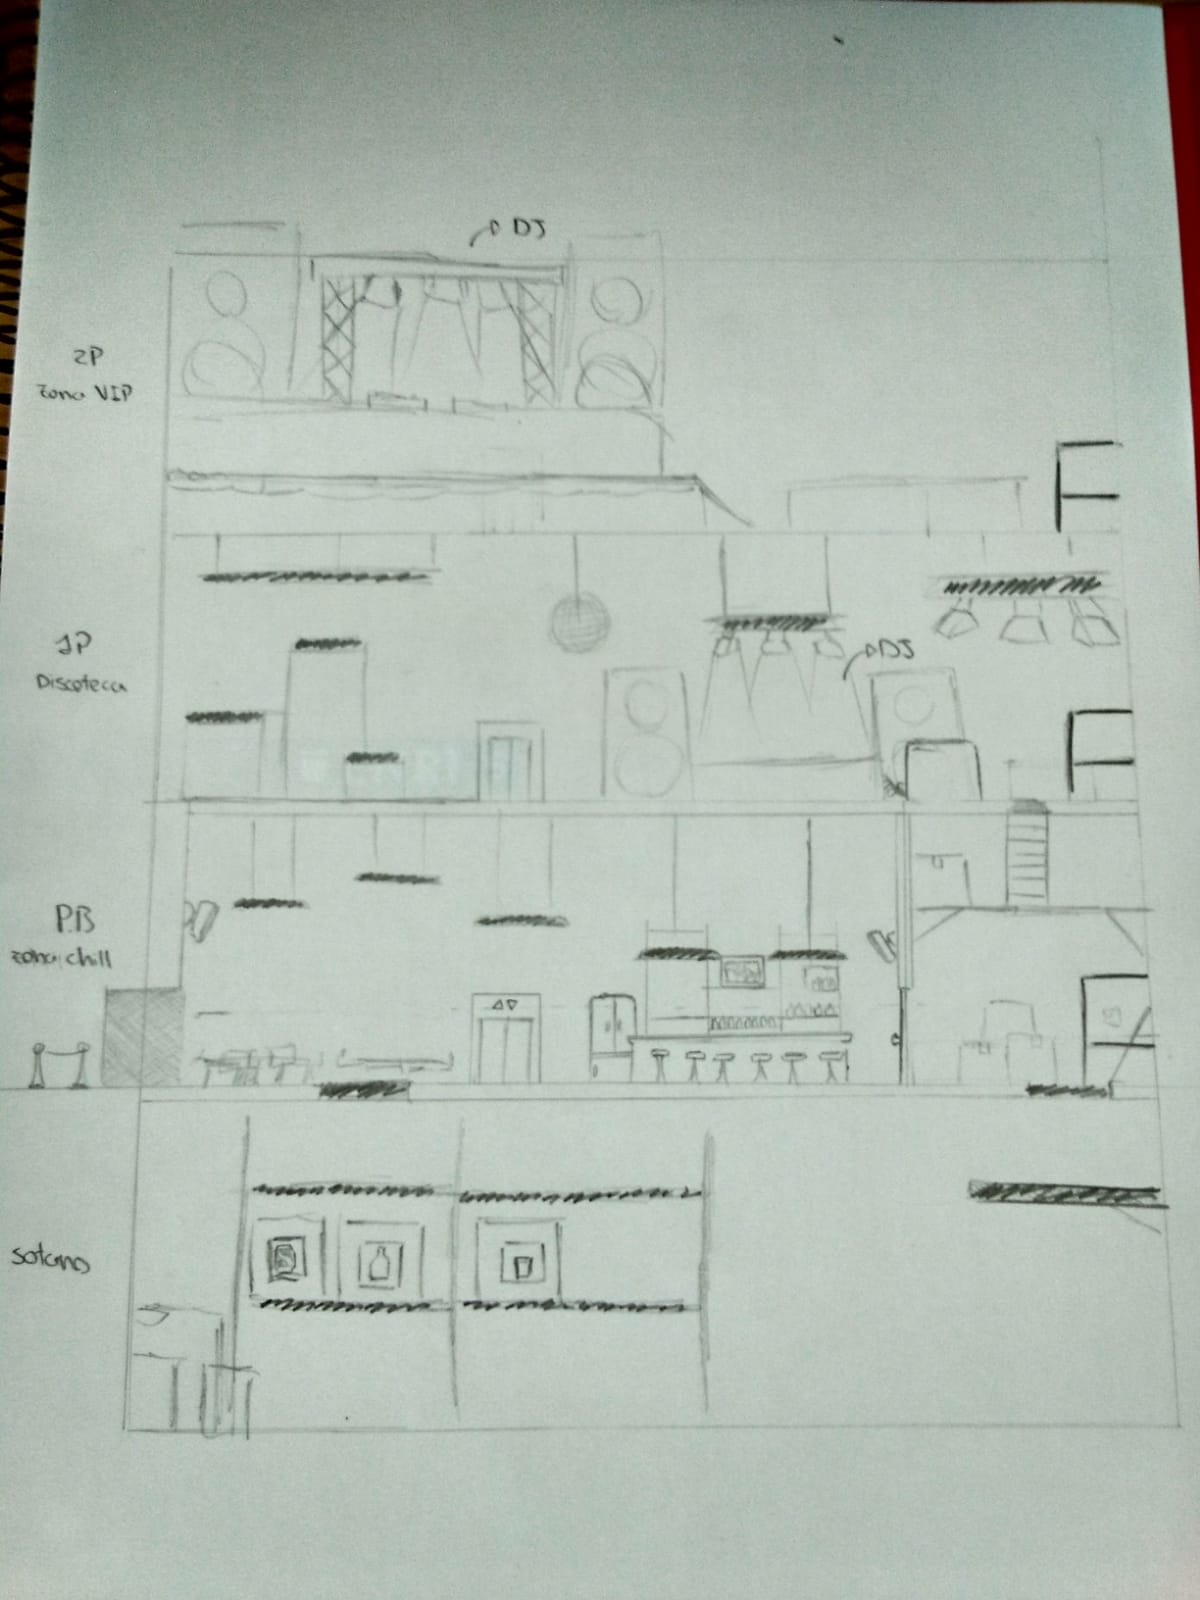 DJ
2P
Zona VIP
1P
Discoteca
DJ
P.B
zona chill
sotano